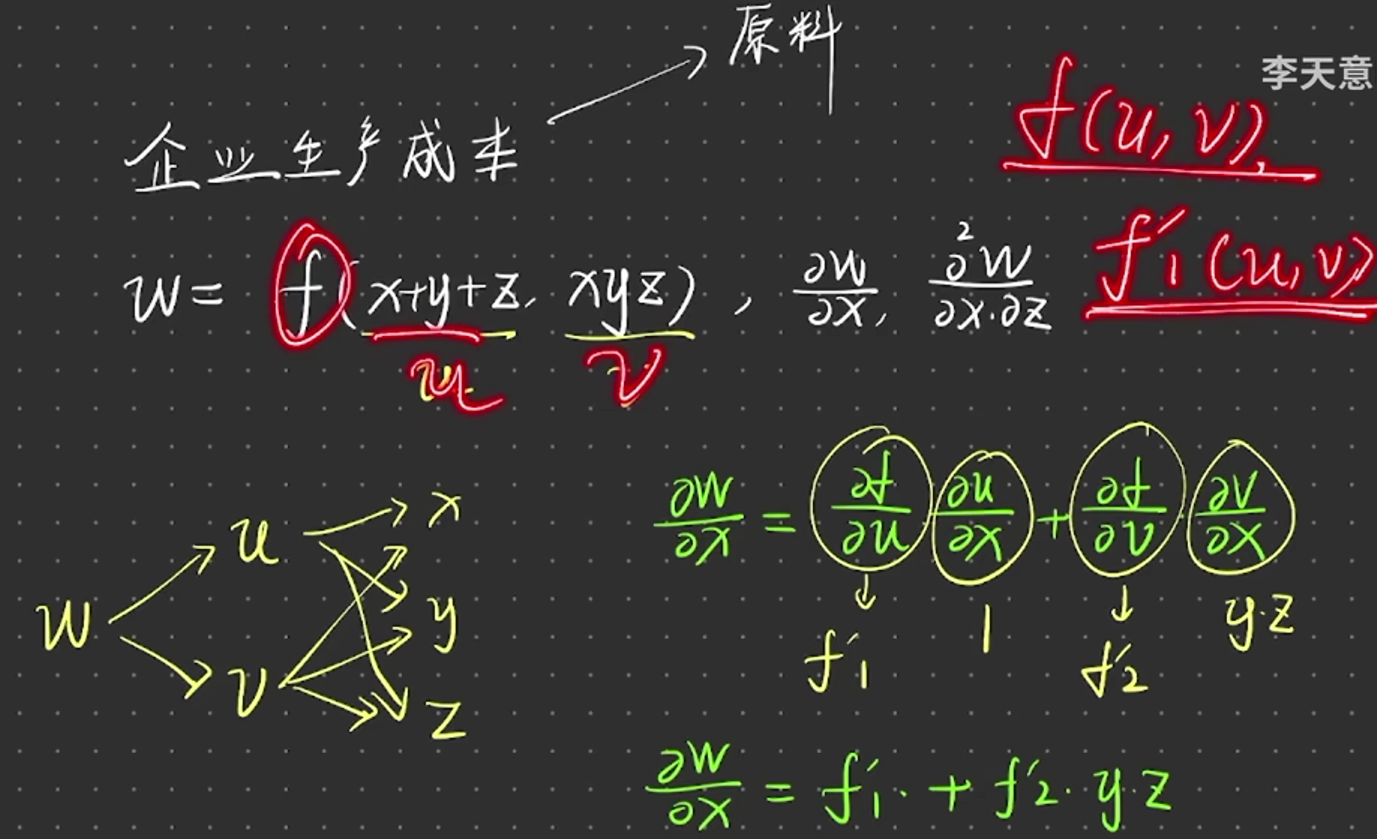 原料
李天意
企业生产成本
f(u,v),
w = f(x+y+z, xyz), ∂w/∂x, ∂²w/∂x·∂z f'₁(u,v)
u v
∂w/∂x = ∂f/∂u ∂u/∂x + ∂f/∂v · ∂v/∂x
f'₁ 1 f'₂ y·z
w u v x y z
∂w/∂x = f'₁· + f'₂·yz